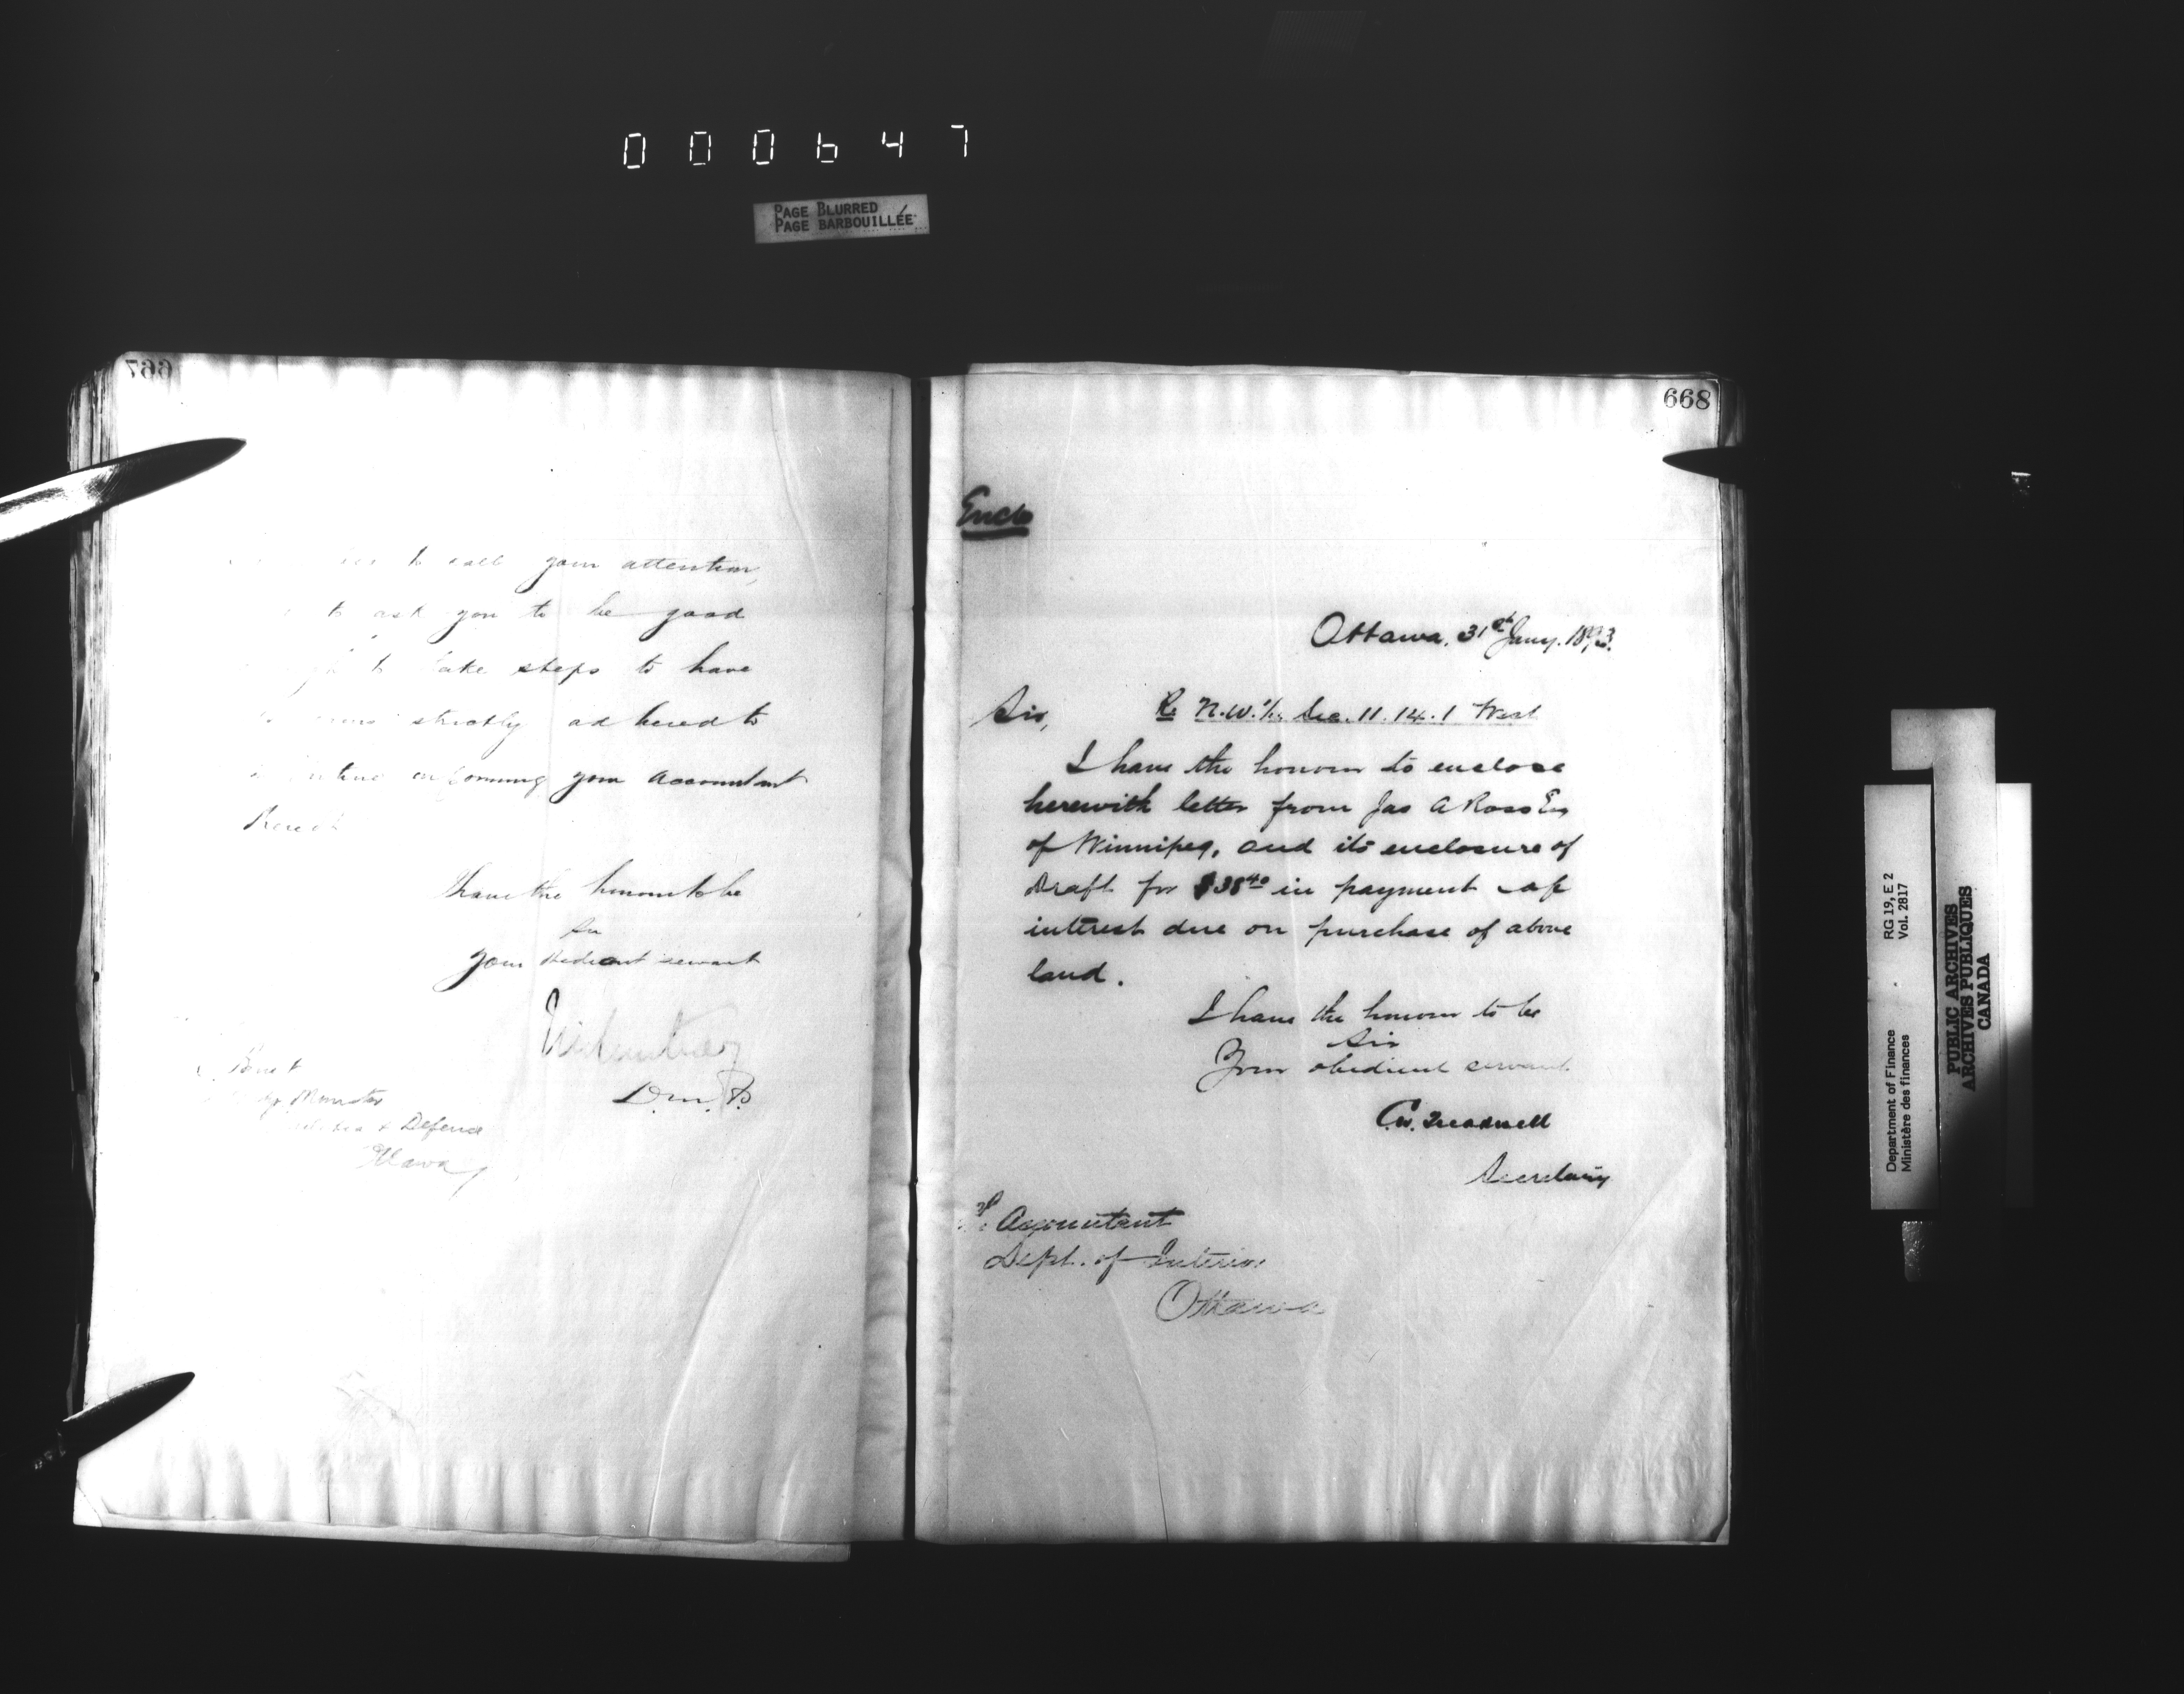 000647
PAGE BLURRED
PAGE BARBOUILLÉE
667
to call your attention,
to ask you to be good
to take steps to have
strictly adhered to
informing your accountant
I have the honour to be
Sir
Your obedient servant
D.M.F.
Minister
& Defence
Ottawa
668
Enclo
Ottawa, 31st Jany. 1893.
Sir, Re N.W.¼ Sec. 11. 14. 1 West
I have the honour to enclose
herewith letter from Jas A Ross Esq
of Winnipeg, and its enclosure of
Draft for $38.40 in payment of
interest due on purchase of above
land.
I have the honour to be
Sir
Your obedient servant
C.W. Treadwell
Secretary
Accountant
Dept. of Interior
Ottawa
Department of Finance RG 19, E 2
Ministère des finances Vol. 2817
PUBLIC ARCHIVES
ARCHIVES PUBLIQUES
CANADA